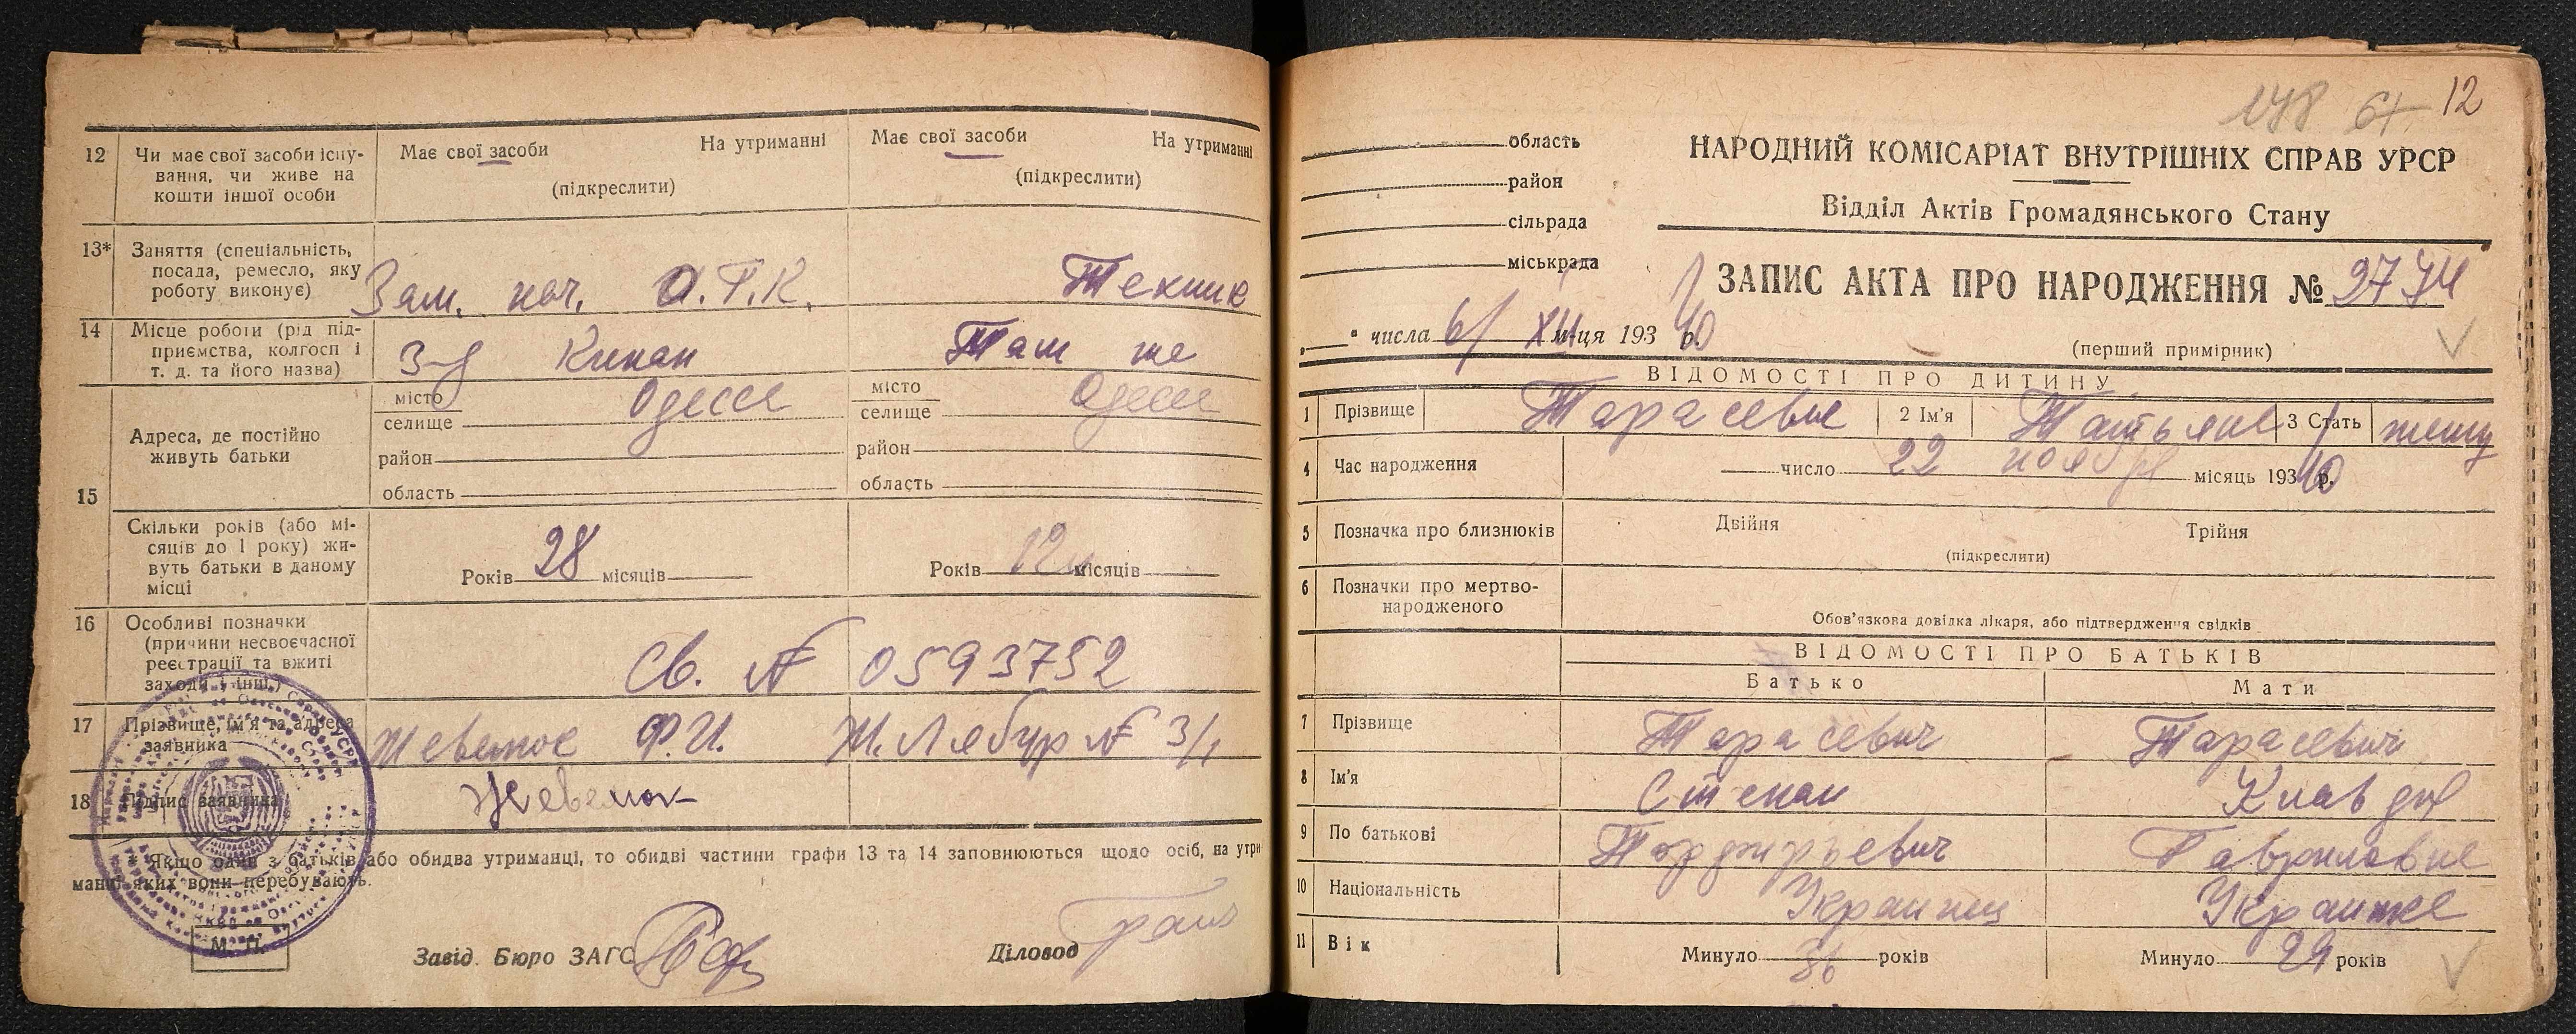 12 Чи має свої засоби існу-
вання, чи живе на
кошти іншої особи
Має свої засоби На утриманні
(підкреслити)
Має свої засоби На утриманні
(підкреслити)
13* Заняття (спеціальність,
посада, ремесло, яку
роботу виконує)
Зам. нач. О.Т.К.
Техник
14 Місце роботи (рід під-
приємства, колгосп і
т. д. та його назва)
З-д Кинап
Там же
15 Адреса, де постійно
живуть батьки
місто
селище Одесса
район
область
місто
селище Одесса
район
область
Скільки років (або мі-
сяців до 1 року) жи-
вуть батьки в даному
місці
Років 28 місяців
Років 12 місяців
16 Особливі позначки
(причини несвоєчасної
реєстрації та вжиті
заходи і інш.)
Св. № 0593752
17 Прізвище, ім'я та адреса
заявника
Ф.И. № 3/1
18 Підпис заявника
* Якщо один з батьків або обидва утриманці, то обидві частини графи 13 та 14 заповнюються щодо осіб, на утри
манні яких вони перебувають.
М. П.
Завід. Бюро ЗАГС
Діловод
178 61 12
область
район
сільрада
міськрада
НАРОДНИЙ КОМІСАРІАТ ВНУТРІШНІХ СПРАВ УРСР
Відділ Актів Громадянського Стану
ЗАПИС АКТА ПРО НАРОДЖЕННЯ № 2774
" числа 6/ XII м-ця 193 40 р.
(перший примірник)
ВІДОМОСТІ ПРО ДИТИНУ
1 Прізвище Тарасевич 2 Ім'я Татьяна 3 Стать женщ
4 Час народження число 22 ноября місяць 193 40 р.
5 Позначка про близнюків Двійня Трійня
(підкреслити)
6 Позначки про мертво-
народженого
Обов'язкова довідка лікаря, або підтвердження свідків
ВІДОМОСТІ ПРО БАТЬКІВ
Батько Мати
7 Прізвище Тарасевич Тарасевич
8 Ім'я Степан Клавдия
9 По батькові Порфирьевич Гавриловна
10 Національність Украинец Украинка
11 Вік Минуло 36 років Минуло 29 років